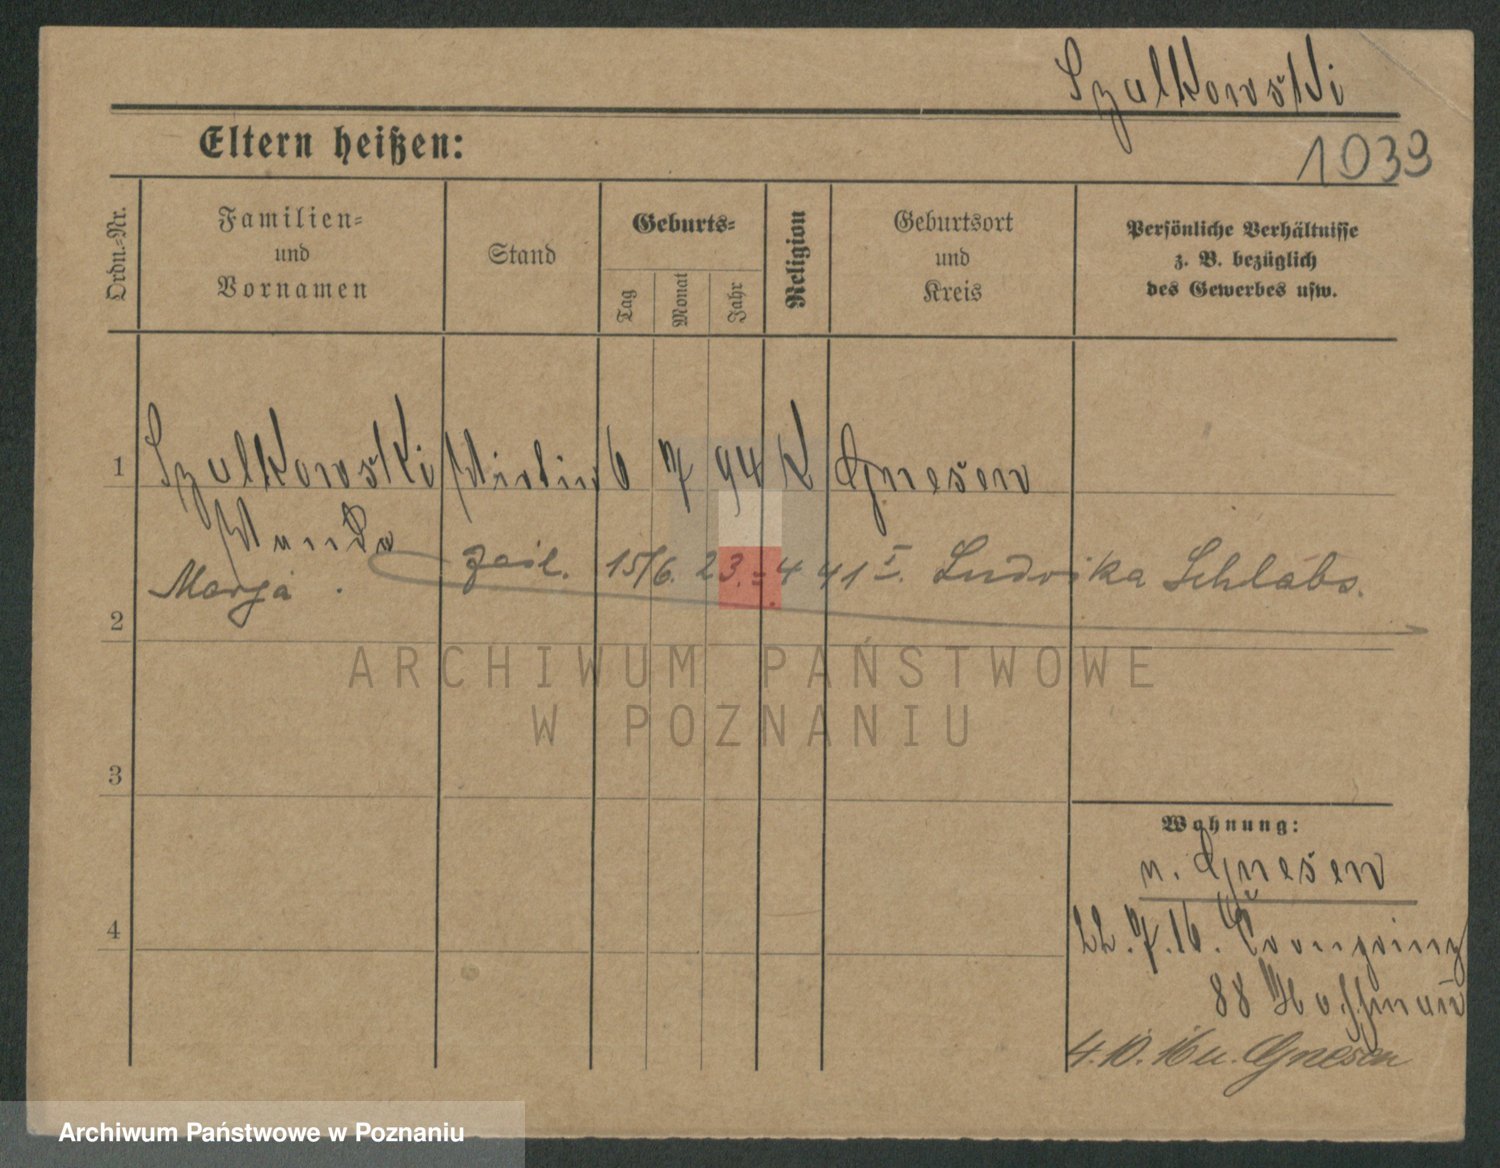 Szulkowski
1039
Eltern heißen:
Ordn.-Nr.
Familien-
und
Vornamen
Stand
Geburts-
Tag
Monat
Jahr
Religion
Geburtsort
und
Kreis
Persönliche Verhältnisse
z. B. bezüglich
des Gewerbes usw.
1
Szulkowski
6 7 94 K Gnesen
Wanda
Marja
15/6. 23. = 4 41 I. Ludvika Schlabs.
2
ARCHIWUM PAŃSTWOWE
W POZNANIU
3
Wohnung:
n. Gnesen
4
22.7.16. Kronprinz
88 Hoffmann
4.10.16 n. Gnesen
Archiwum Państwowe w Poznaniu